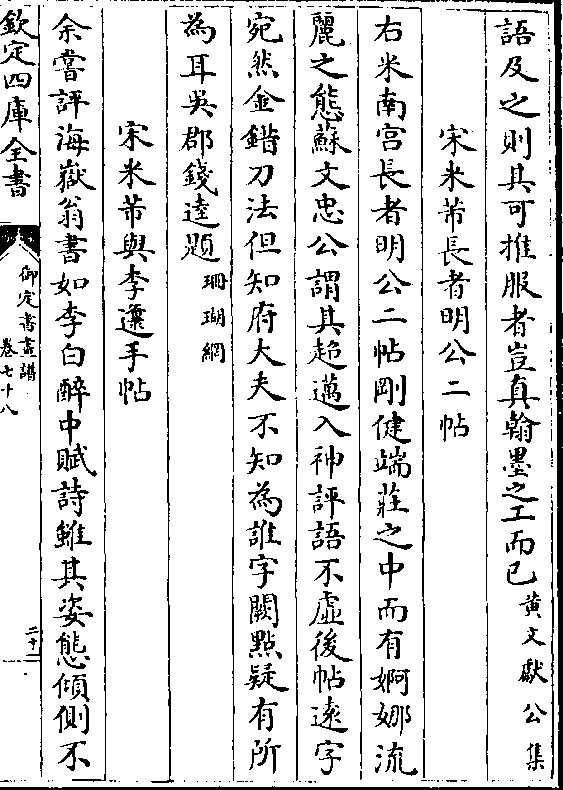 語及之則其可推服者豈真翰墨之工而已黃文獻公集
宋米芾長者明公二帖
右米南宮長者明公二帖剛健端莊之中而有婀娜流
麗之態蘇文忠公謂其超邁入神評語不虛後帖遠字
宛然金錯刀法但知府大夫不知為誰字闕點疑有所
為耳吳郡錢逵題珊瑚網
宋米芾與李邍手帖
余嘗評海嶽翁書如李白醉中賦詩雖其姿態傾側不
欽定四庫全書
御定書畫譜
卷七十八
二十一